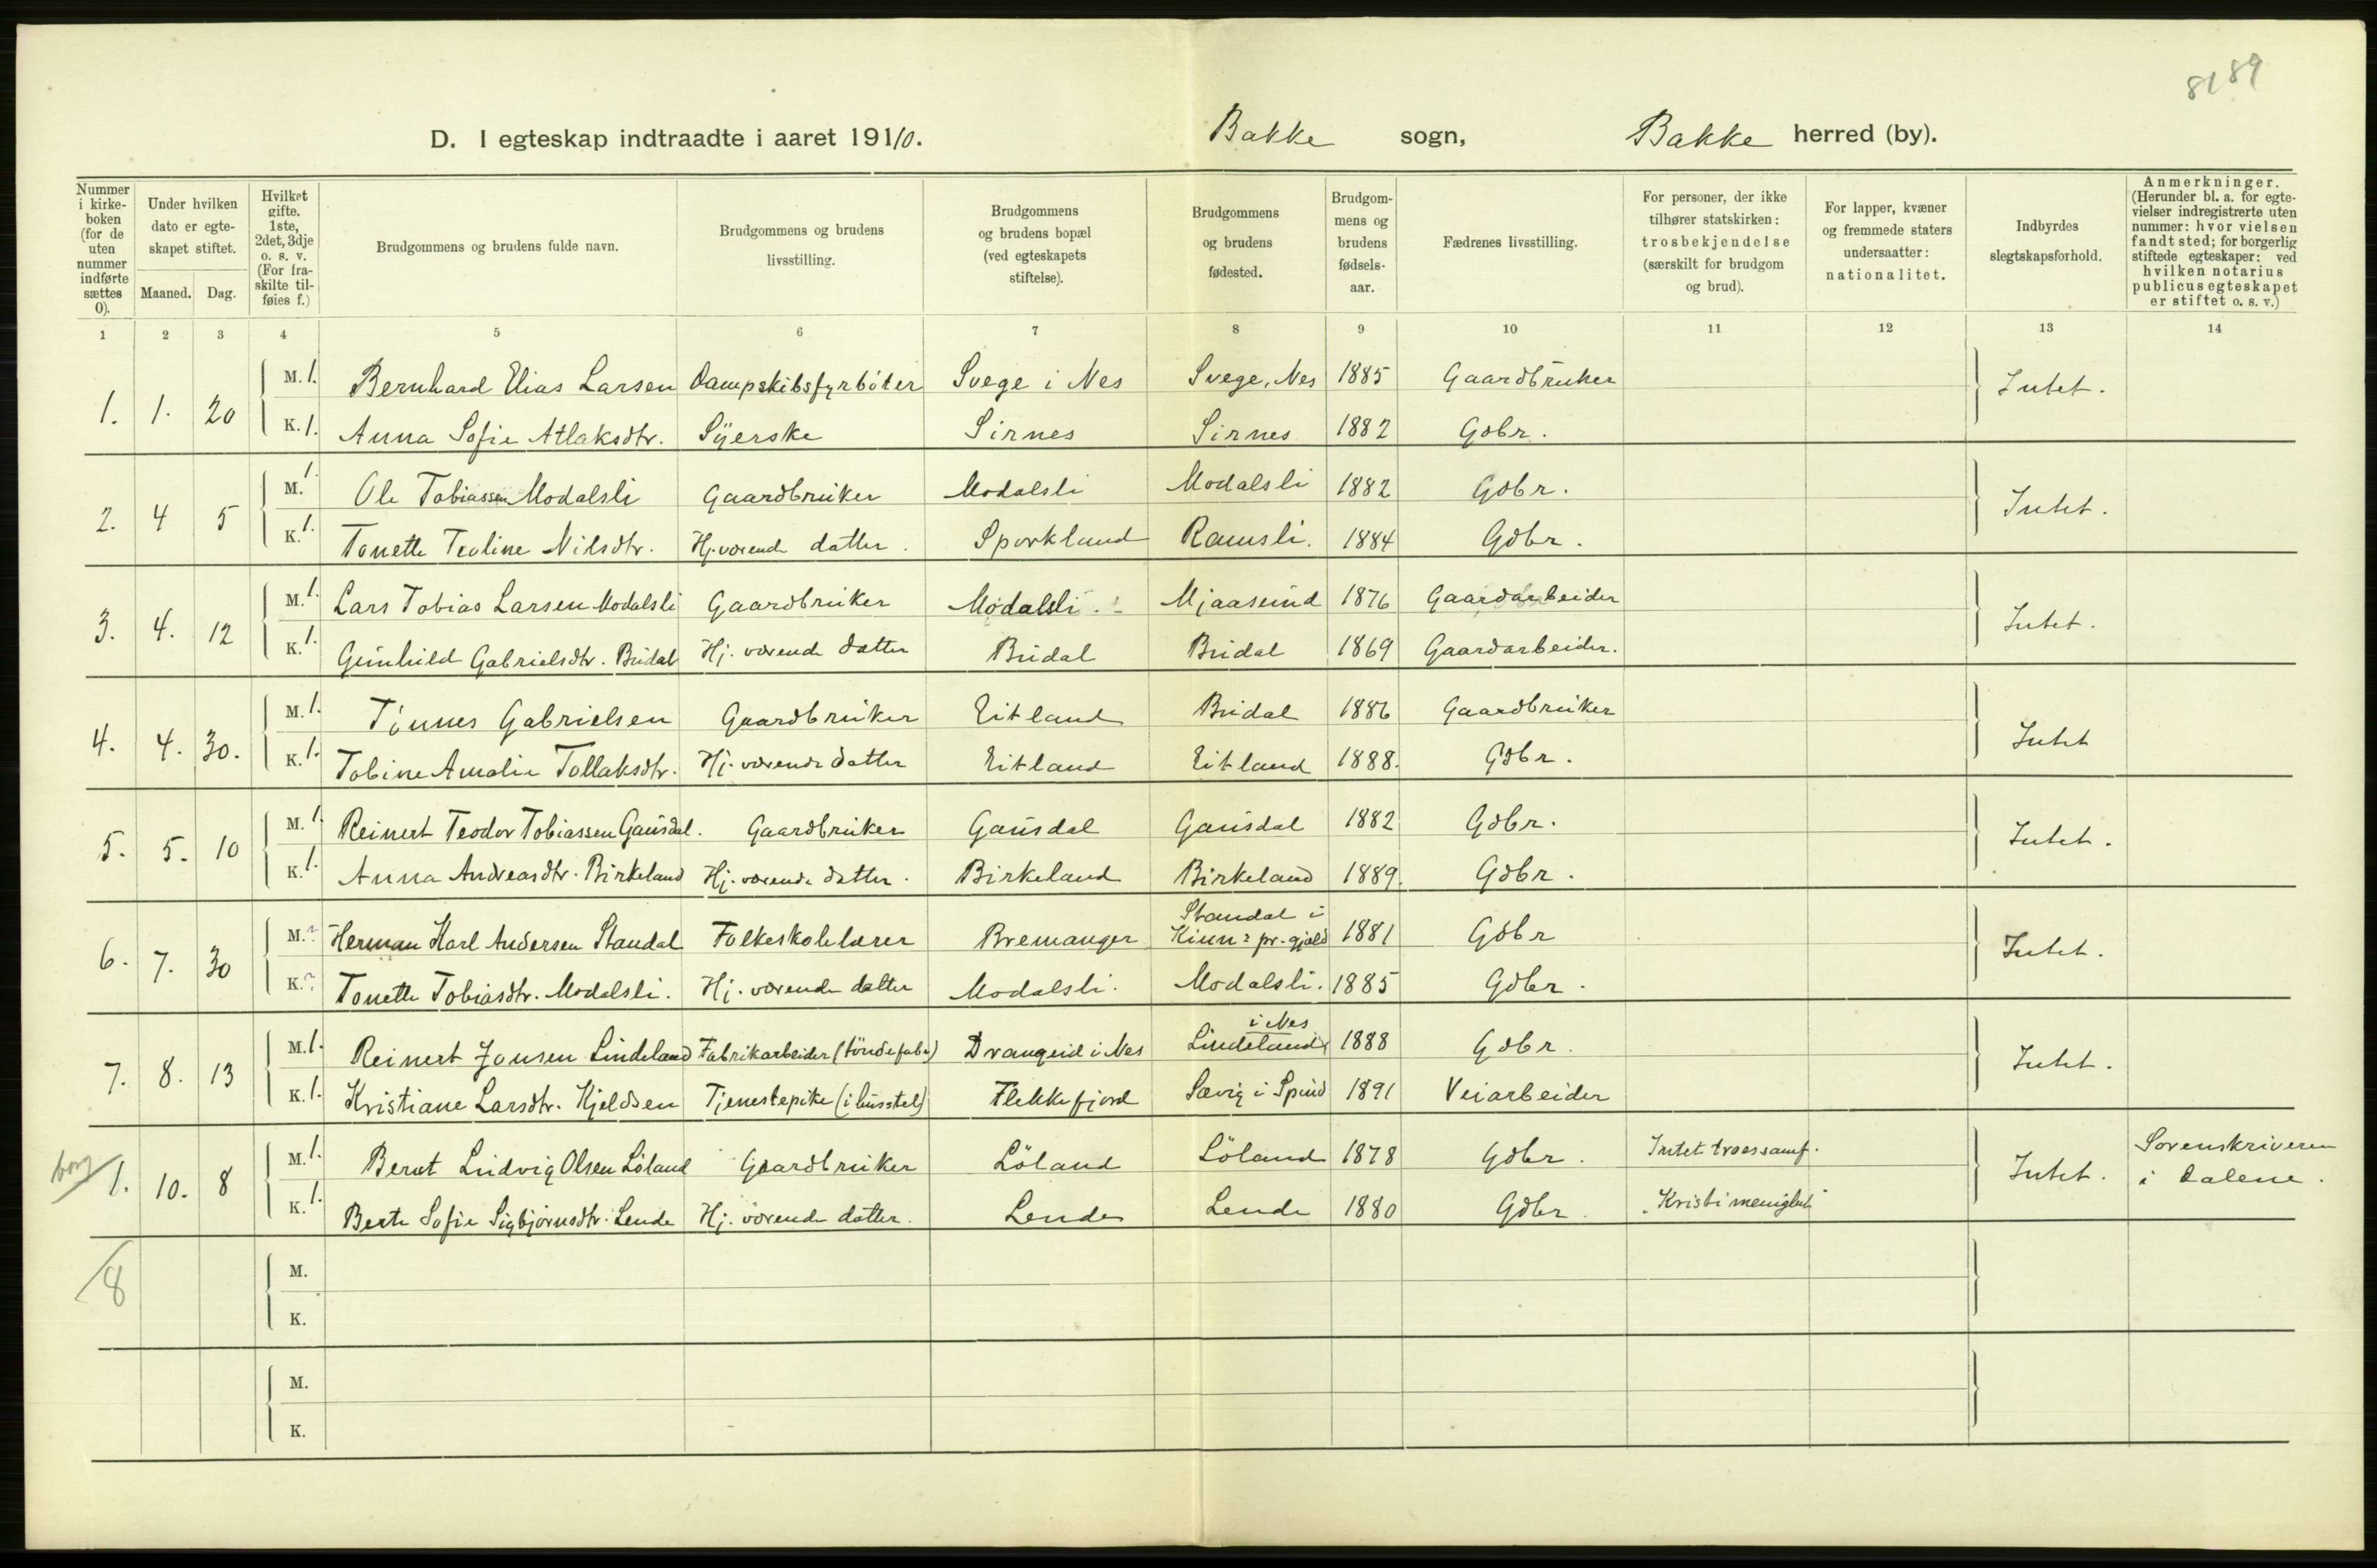 81 89
D. I egteskap indtraadte i aaret 1910. Bakke sogn, Bakke herred (by).
Nummer i kirke-boken (for de uten nummer indførte sættes 0). Under hvilken dato er egte-skapet stiftet. Maaned. Dag. Hvilket gifte. 1ste, 2det, 3dje o. s. v. (For fra-skilte til-føies f.) Brudgommens og brudens fulde navn. Brudgommens og brudens livsstilling. Brudgommens og brudens bopæl (ved egteskapets stiftelse). Brudgommens og brudens fødested. Brudgom-mens og brudens fødsels-aar. Fædrenes livsstilling. For personer, der ikke tilhører statskirken: trosbekjendelse (særskilt for brudgom og brud). For lapper, kvæner og fremmede staters undersaatter: nationalitet. Indbyrdes slegtskapsforhold. Anmerkninger. (Herunder bl. a. for egte-vielser indregistrerte uten nummer: hvor vielsen fandt sted; for borgerlig stiftede egteskaper: ved hvilken notarius publicus egteskapet er stiftet o. s. v.)
1 2 3 4 5 6 7 8 9 10 11 12 13 14
1. 1. 20 M. 1. Bernhard Elias Larsen Dampskibsfyrböter Svege i Nes Svege, Nes 1885 Gaardbruker Intet.
K. 1. Anna Sofie Atlaksdtr. Syerske Sirnes Sirnes 1882 Gdbr.
2. 4 5 M. 1. Ole Tobiassen Modalsli Gaardbruker Modalsli Modalsli 1882 Gdbr. Intet.
K. 1. Tonette Teoline Nilsdtr. Hj. værende datter. Sporkland Ramsli. 1884 Gdbr.
3. 4. 12 M. 1. Lars Tobias Larsen Modalsli Gaardbruker Modalsli. Mjaasund 1876 Gaardarbeider Intet.
K. 1. Gunhild Gabrielsdtr. Budal Hj. værende datter Budal Budal 1869 Gaardarbeider.
4. 4. 30. M. 1. Tönnes Gabrielsen Gaardbruker Eitland Budal 1886 Gaardbruker Intet
K. 1. Tobine Amalie Tollaksdtr. Hj. værende datter Eitland Eitland 1888. Gdbr.
5. 5. 10 M. 1. Reinert Teodor Tobiassen Gausdal. Gaardbruker Gausdal Gausdal 1882 Gdbr. Intet.
K. 1. Anna Andreasdtr. Birkeland Hj. værende datter. Birkeland Birkeland 1889. Gdbr.
6. 7. 30 M. ? Herman Karl Andersen Standal Folkeskolelærer Bremanger Standal i Kinn pr. gjæld 1881 Gdbr Intet.
K. ? Tonette Tobiasdtr. Modalsli. Hj. værende datter Modalsli. Modalsli. 1885 Gdbr.
7. 8. 13 M. 1. Reinert Jonsen Lindeland Fabrikarbeider (töndefabr) Drangeid i Nes Lindeland i Nes 1888 Gdbr. Intet.
K. 1. Kristiane Larsdtr. Kjeldsen Tjenestepike (i husstel) Flekkefjord Sævig i Spind 1891 Veiarbeider
borg 1. 10. 8 M. 1. Berot Ludvig Olsen Löland Gaardbruker Löland Löland 1878 Gdbr. Intet troessamf. Intet. Sorenskriveren
K. 1. Berte Sofie Sigbjörnsdtr. Lende Hj. værende datter. Lende Lende 1880 Gdbr. "Kristi menighet" i Dalene.
8 M.
K.
M.
K.